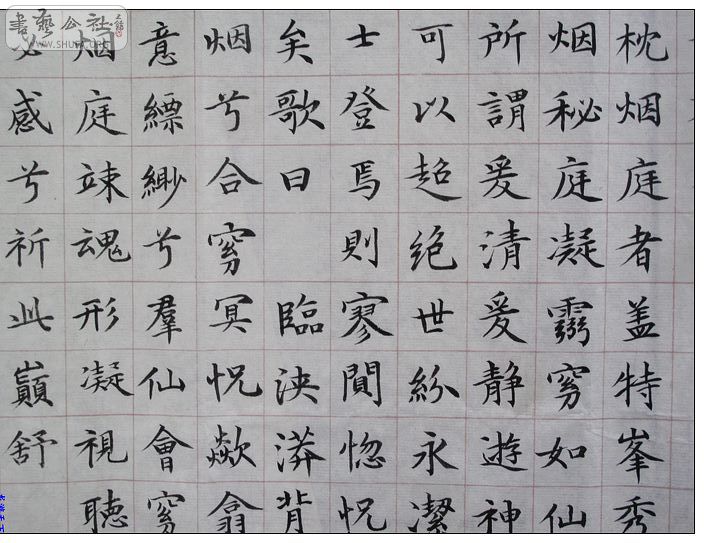 枕烟庭者盖特峯秀
烟秘庭凝窈如仙
所謂爰清爰静遊神
可以超绝世紛永潔
士登焉則寥閴惚怳
矣歌曰 臨泱漭背
烟兮合窈冥怳歘翕
意縹緲兮羣仙會窈
烟庭竦魂形凝視聽
必感兮祈此巔舒
書藝公社
WWW.SHUFA.ORG